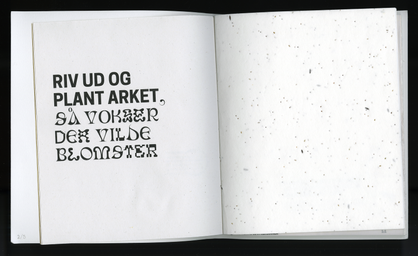 RIV UD OG
PLANT ARKET,
SÅ VOKSER
DER VILDE
BLOMSTER